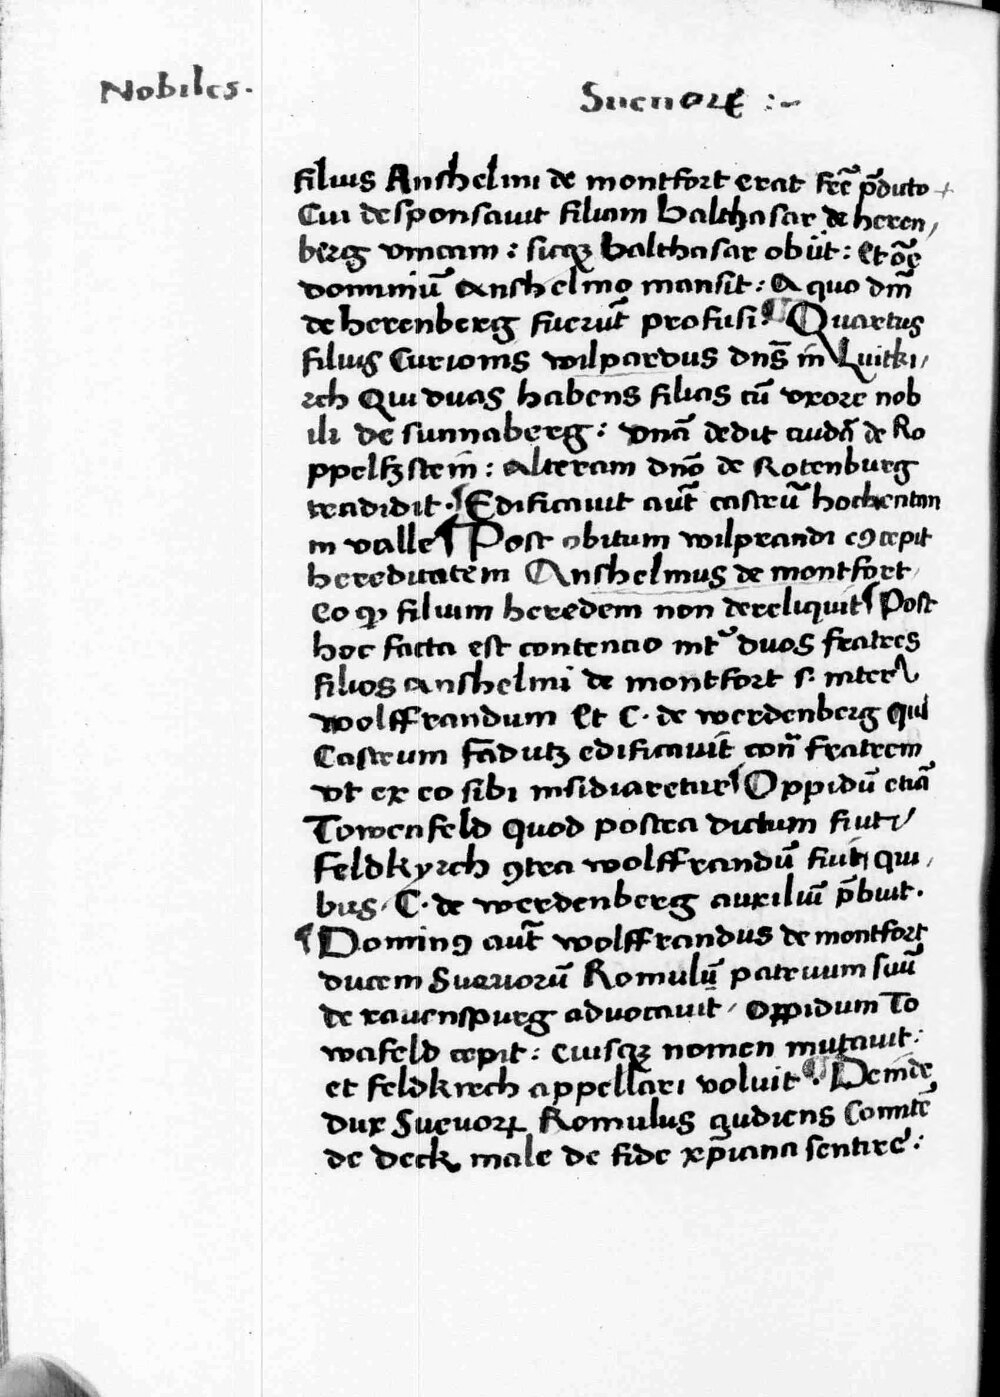 Nobiles.
Sueuoꝝ :~
filius Anshelmi de montfort erat fr̄e p̄dicto
Cui desponsauit filiam balthasar de heren,
berg vnicam : sicqꝫ balthasar obijt : Et oē
dominiū anshelmo mansit : A quo dn̄i
de herenberg fuerūt profusi. ¶ Quartus
filius Curionis wilpardus dn̄s in Luitki,
rch Qui duas habens filias cū vxore nob
ili de sunnaberg : vnā dedit cuidā de Ro
ppelfzstein : alteram dn̄o de Rotenburg
tradidit. ¶ Edificauit aūt castrū hochentan
in valle ¶ Post obitum wilprandi ꝯcepit
hereditatem Anshelmus de montfort,
eo ꝙ filium heredem non dereliquit ¶ Post
hoc facta est contencio int᷒ duos fratres
filios anshelmi de montfort s. inter
wolffrandum Et C. de werdenberg qui
Castrum fadutz edificauit con̄ fratrem
vt ex eo sibi insidiaretur ¶ Oppidū etiā
Towenfeld quod postea dictum fiut
feldkyrch ꝯtra wolffrandū fiuit qui,
bus. C. de werdenberg auxiliū p̄buit.
¶ Dominꝯ aūt wolffrandus de montfort
ducem Sueuorū Romulū patruum suū
de rauenspurg aduocauit, oppidum To
wafeld cepit : eiusqꝫ nomen mutauit :
et feldkirch appellari voluit. ¶ Deinde
dux Sueuoꝝ Romulus audiens Comitē
de deck male de fide xp̄iana sentire :